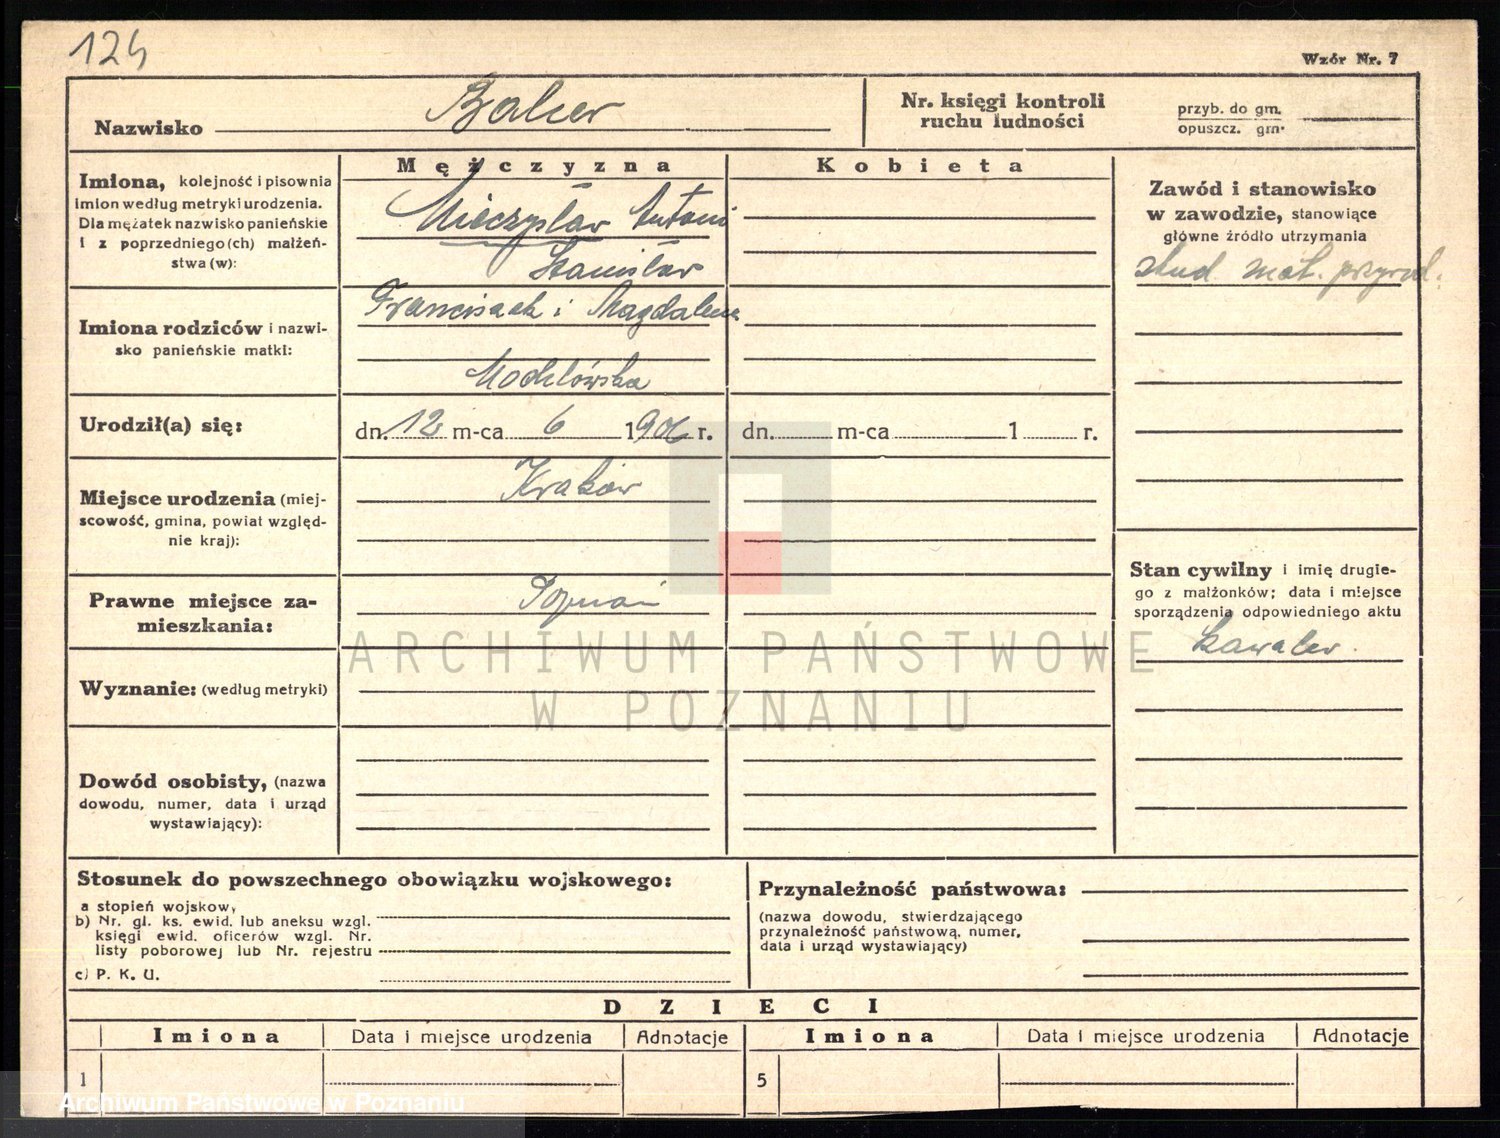 124
Wzór Nr. 7
Nazwisko Balcer
Nr. księgi kontroli
ruchu ludności
przyb. do gm.
opuszcz. gm.
Mężczyzna
Kobieta
Imiona, kolejność i pisownia
imion według metryki urodzenia.
Dla mężatek nazwisko panieńskie
i z poprzedniego(ch) małżeń-
stwa(w):
Mieczysław Antoni
Stanisław
Zawód i stanowisko
w zawodzie, stanowiące
główne źródło utrzymania
stud. mat. przyrod.
Imiona rodziców i nazwi-
sko panieńskie matki:
Franciszek i Magdalena
Modelówska
Urodził(a) się:
dn. 12 m-ca 6 1906 r.
dn. m-ca 1 r.
Miejsce urodzenia (miej-
scowość, gmina, powiat względ-
nie kraj):
Kraków
Stan cywilny i imię drugie-
go z małżonków; data i miejsce
sporządzenia odpowiedniego aktu
kawaler.
Prawne miejsce za-
mieszkania:
Poznań
ARCHIWUM PAŃSTWOWE
W POZNANIU
Wyznanie: (według metryki)
Dowód osobisty, (nazwa
dowodu, numer, data i urząd
wystawiający):
Stosunek do powszechnego obowiązku wojskowego:
a stopień wojskowy
b) Nr. gl. ks. ewid. lub aneksu wzgl.
księgi ewid. oficerów wzgl. Nr.
listy poborowej lub Nr. rejestru
c) P. K. U.
Przynależność państwowa:
(nazwa dowodu, stwierdzającego
przynależność państwową, numer,
data i urząd wystawiający)
DZIECI
Imiona Data i miejsce urodzenia Adnotacje Imiona Data i miejsce urodzenia Adnotacje
1 5
Archiwum Państwowe w Poznaniu